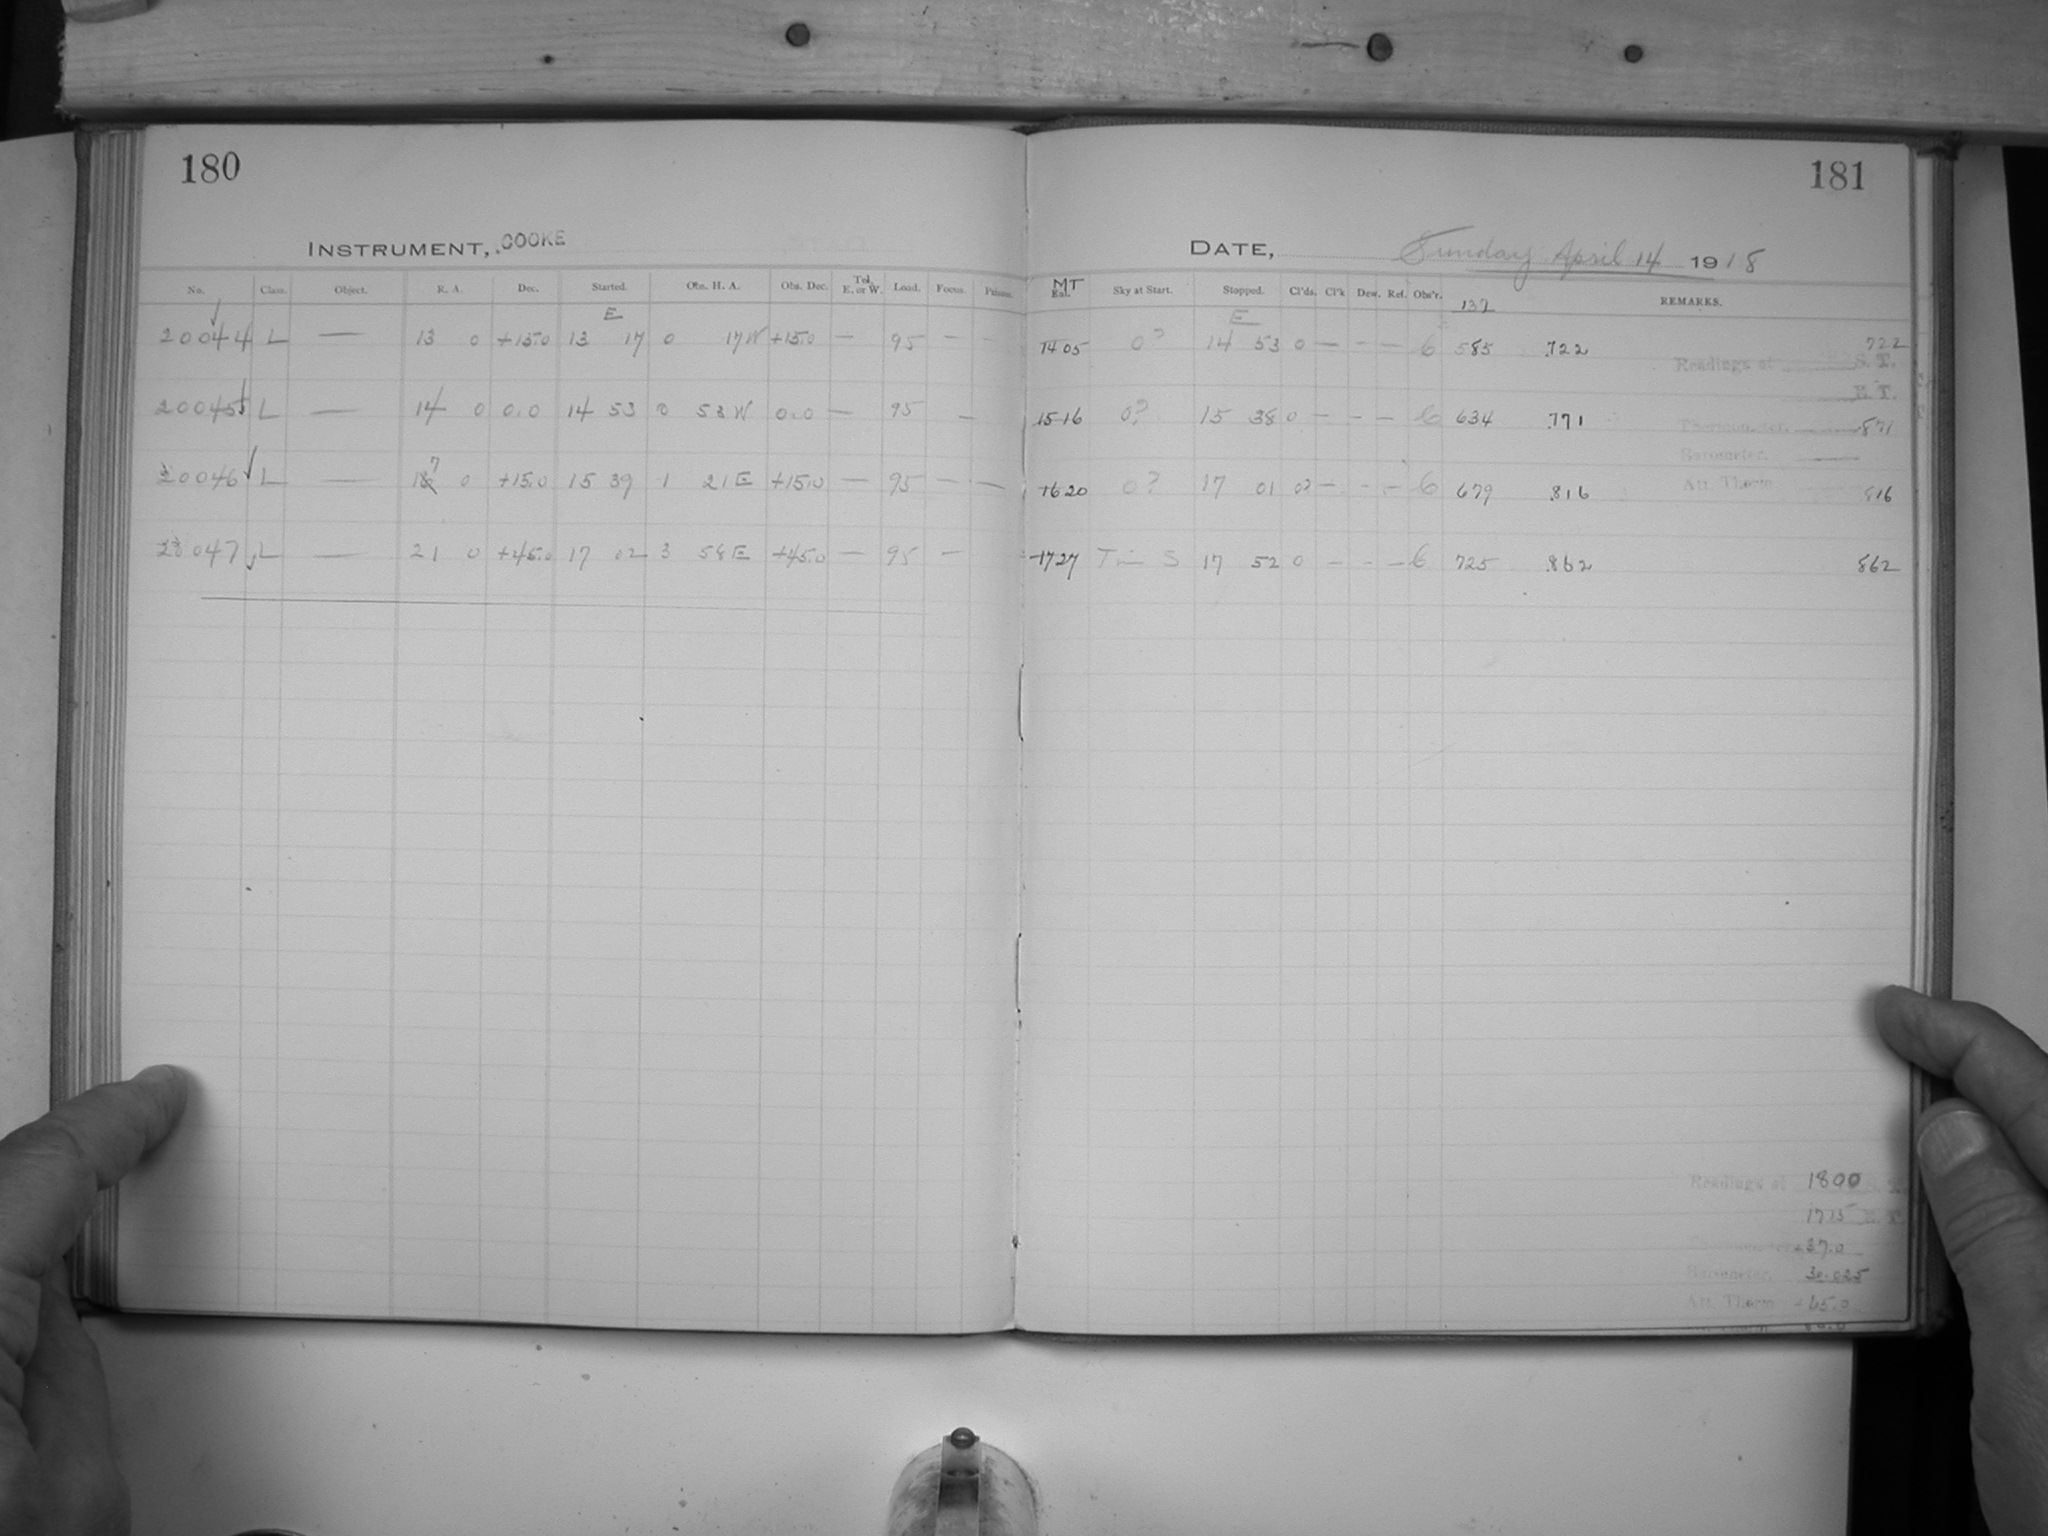 180
INSTRUMENT, COOKE
No. Class. Object. R. A. Dec. Started. Obs. H. A. Obs. Dec. Tel. E. or W. Load. Focus. Prisms.
E
20044 L — 13 0 +15.0 13 17 0 17 W +15.0 — 95 — —
20045 L — 14 0 0.0 14 53 0 53 W 0.0 — 95 —
20046 L — 187 0 +15.0 15 39 1 21 E +15.0 — 95 — —
20047 L — 21 0 +45.0 17 02 3 58 E +45.0 — 95 —
181
DATE, Sunday April 14 1918
MT Sky at Start. Stopped. Cl'ds. Cl'k Dew. Ref. Obs'r. 137 REMARKS.
E
1405 0? 14 53 0 — — — 6 585 .722 722
Readings at S. T.
E. T.
1516 0? 15 38 0 — — — 6 634 .771
Thermometer. .871
Barometer.
1620 0? 17 01 0? — — — 6 679 .816 816
Att. Therm
1727 S 17 52 0 — — — 6 725 .862 862
Readings at 1800 S. T.
1715 E. T.
37.0
Barometer. 30.025
Att. Therm 65.0